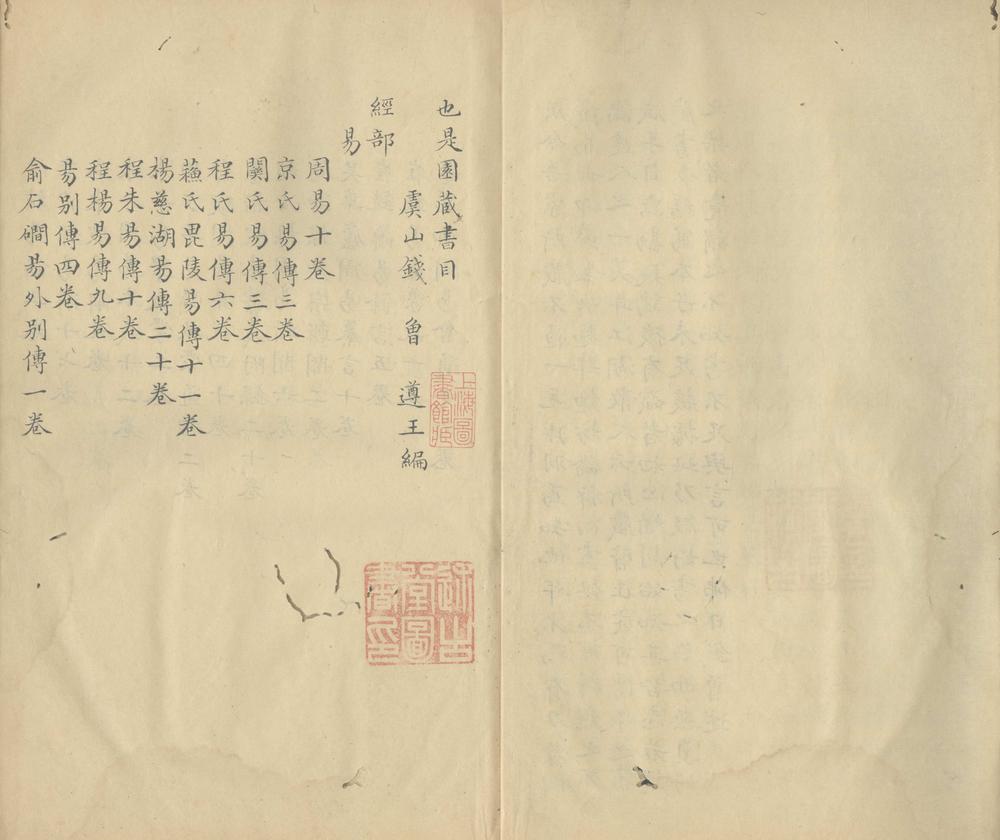 也是園藏書目
虞山錢 曾 遵王編
經部
易
周易十卷
京氏易傳三卷
關氏易傳三卷
程氏易傳六卷
蘓氏毘陵易傳十一卷
楊慈湖易傳二十卷
程朱易傳十卷
程楊易傳九卷
易別傳四卷
俞石磵易外別傳一卷
上海圖書館藏